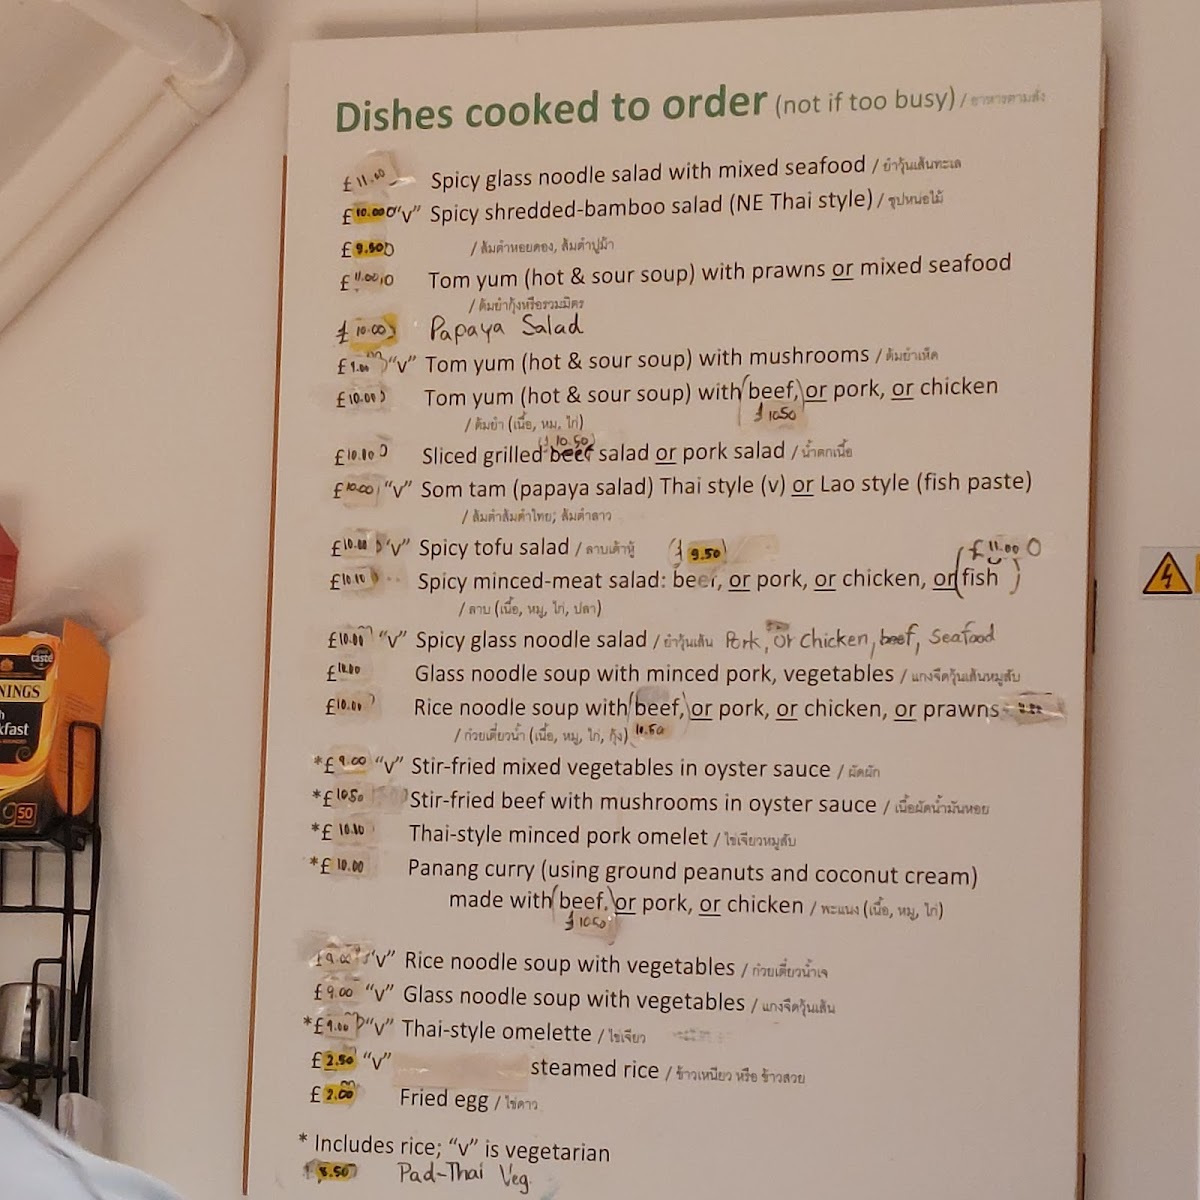 Dishes cooked to order (not if too busy) / อาหารตามสั่ง
£11.00 Spicy glass noodle salad with mixed seafood / ยำวุ้นเส้นทะเล
£10.00 "v" Spicy shredded-bamboo salad (NE Thai style) / ซุปหน่อไม้
£9.50 / ส้มตำหอยดอง, ส้มตำปูม้า
£11.00 Tom yum (hot & sour soup) with prawns or mixed seafood
/ ต้มยำกุ้งหรือรวมมิตร
£10.00 Papaya Salad
£9.00 "v" Tom yum (hot & sour soup) with mushrooms / ต้มยำเห็ด
£10.00 Tom yum (hot & sour soup) with (beef,) or pork, or chicken
£10.50
/ ต้มยำ (เนื้อ, หมู, ไก่)
(£10.50)
£10.00 Sliced grilled beef salad or pork salad / น้ำตกเนื้อ
£10.00 "v" Som tam (papaya salad) Thai style (v) or Lao style (fish paste)
/ ส้มตำส้มตำไทย; ส้มตำลาว
£10.00 "v" Spicy tofu salad / ลาบเต้าหู้ (£9.50) £11.00
Spicy minced-meat salad: beef, or pork, or chicken, or (fish)
/ ลาบ (เนื้อ, หมู, ไก่, ปลา)
£10.00 "v" Spicy glass noodle salad / ยำวุ้นเส้น Pork, or chicken, beef, Seafood
£10.00 Glass noodle soup with minced pork, vegetables / แกงจืดวุ้นเส้นหมูสับ
£10.00 Rice noodle soup with (beef,) or pork, or chicken, or prawns
/ ก๋วยเตี๋ยวน้ำ (เนื้อ, หมู, ไก่, กุ้ง) 10.50
*£9.00 "v" Stir-fried mixed vegetables in oyster sauce / ผัดผัก
*£10.50 Stir-fried beef with mushrooms in oyster sauce / เนื้อผัดน้ำมันหอย
*£10.00 Thai-style minced pork omelet / ไข่เจียวหมูสับ
*£10.00 Panang curry (using ground peanuts and coconut cream)
made with (beef,) or pork, or chicken / พะแนง (เนื้อ, หมู, ไก่)
£10.50
£9.00 "v" Rice noodle soup with vegetables / ก๋วยเตี๋ยวน้ำเจ
£9.00 "v" Glass noodle soup with vegetables / แกงจืดวุ้นเส้น
*£9.00 "v" Thai-style omelette / ไข่เจียว
£2.50 "v" steamed rice / ข้าวเหนียว หรือ ข้าวสวย
£2.00 Fried egg / ไข่ดาว
* Includes rice; "v" is vegetarian
8.50 Pad-Thai Veg.
taste
NINGS
kfast
50